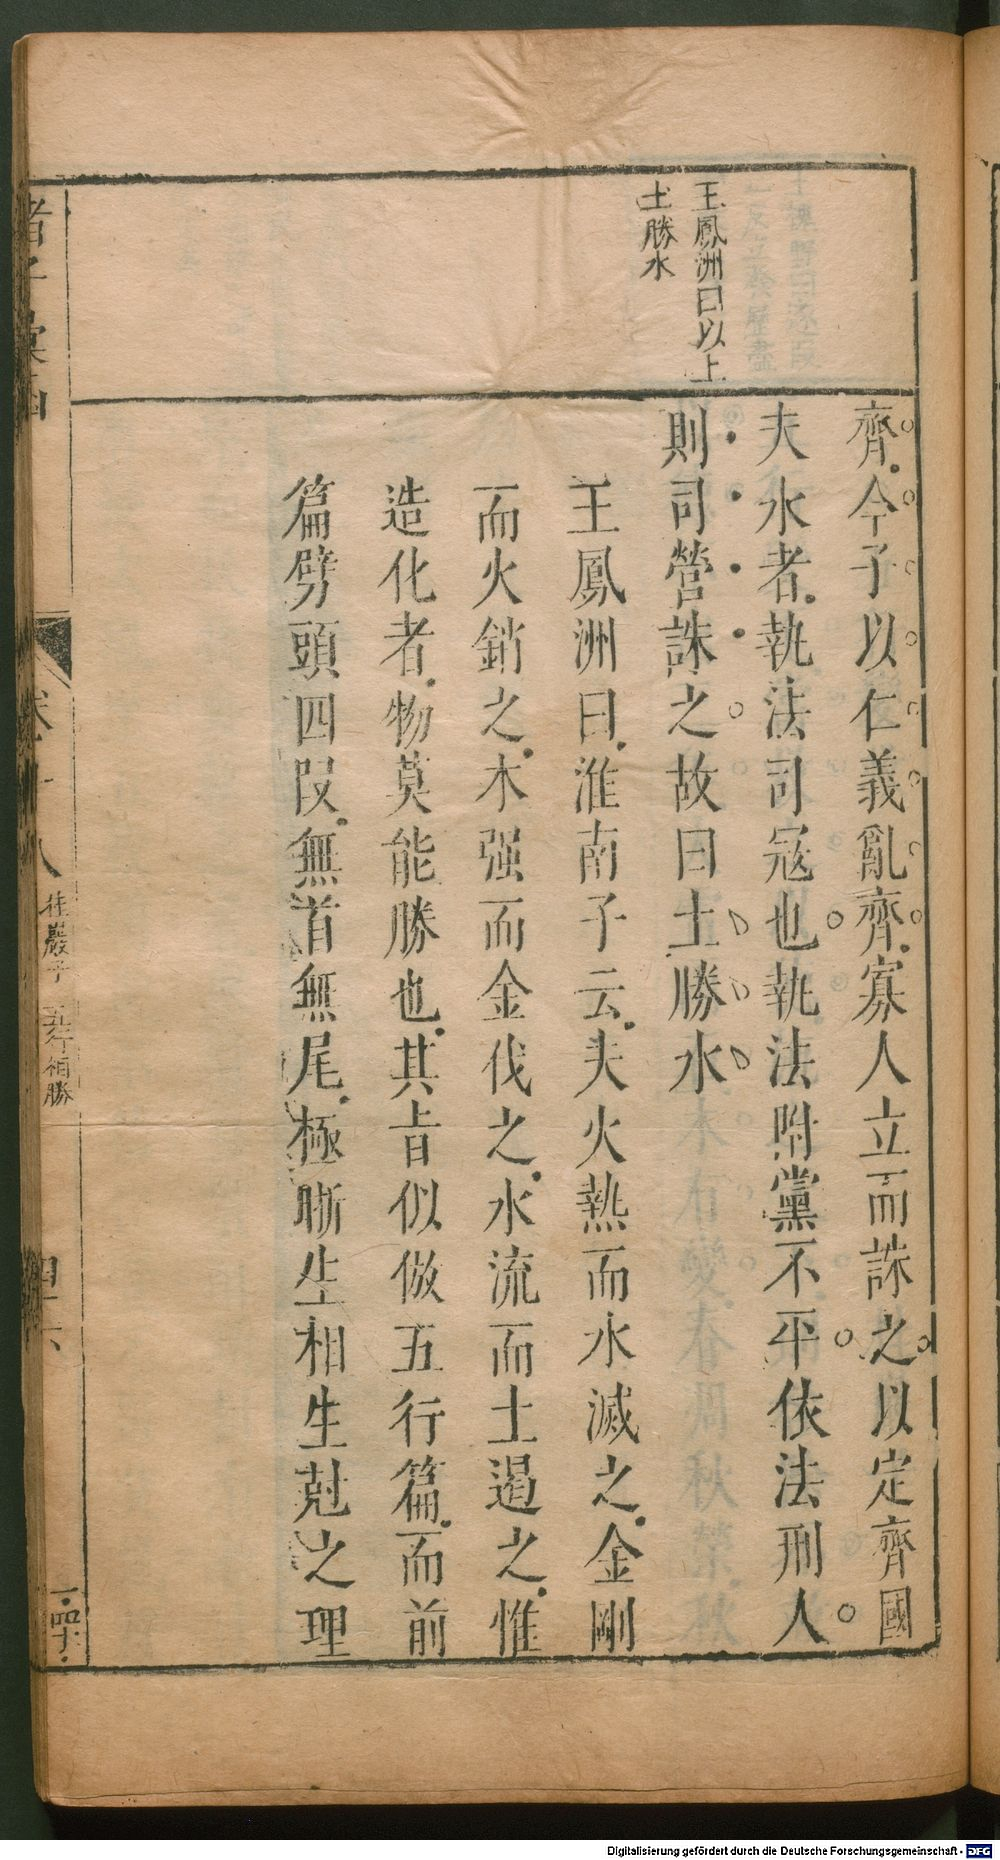 王鳳洲曰以上
土勝水
齊今子以仁義亂齊寡人立而誅之以定齊國
夫水者執法司冦也執法附黨不平依法刑人
則司營誅之故曰土勝水
王鳳洲曰淮南子云夫火熱而水滅之金剛
而火銷之木强而金伐之水流而土遏之惟
造化者物莫能勝也其旨似倣五行篇而前
篇劈頭四段無首無尾極晰生相生尅之理
諸子彙函
卷十八
桂巖子 五行相勝
四十六
Digitalisierung gefördert durch die Deutsche Forschungsgemeinschaft - DFG